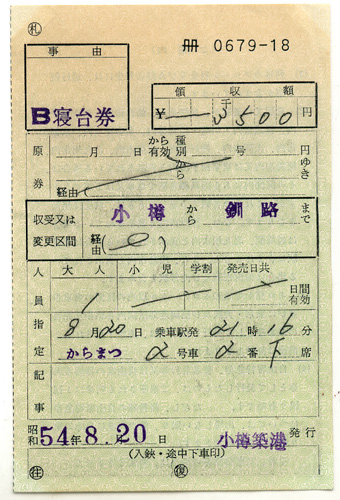 札
冊 0679-18
事由
B寝台券
領収額
￥ 千 3500 円
原券 月 日 から有効 種別 号 円ゆき
から
経由( )
収受又は変更区間 小樽 から 釧路 まで
経由( 0 )
人員 大人 小児 学割 発売日共
1 日間有効
指定 8月20日 乗車駅発 21時16分
からまつ 2号車 2番下席
記事
昭和54年8.20日 小樽築港 発行
(入鋏・途中下車印)
住 復